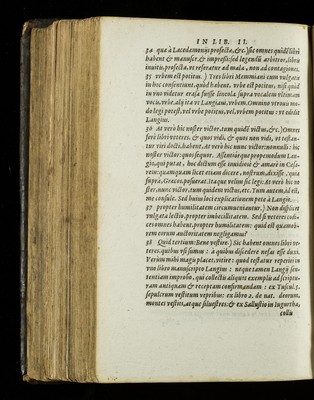 IN LIB. II.
34 que à Lacedæmonijs profecta, &c.) sic omnes quidē libri
habent & manuscr. & impressi: sed legendū arbitror, libro
inuito, profecta, vt referatur ad mala, non ad contagiones.
35 vrbem est potitus.) Tres libri Memmiani cum vulgato
in hoc consentiunt, quod habent, vrbe est potitus, nisi quòd
in vno videtur erasa fuisse lineola supra vocalem vltimam
vocis, vrbe. alij ita vt Langiani, vrbem. Omnino vtrouis mo-
do legi potest, vel vrbe potitus, vel, vrbem potitus: vt edidit
Langius.
36 At verò hic noster victor, tum quidē victus, &c.) Omnes
ferè libri veteres, & quos vidi, & quos non vidi, vt testan-
tur viri docti, habent, At verò hic nunc victor: nonnulli: hic
noster victor: quos sequor. Assentiórque propemodum Lan-
gio, qui putat, hoc dictum esse inuidiosè & amarè in Cæsa-
rem: quamquam licet etiam dicere, nostrum, dixisse, quia
supra, Græcos, posuerat. Itaque velim sic legi: At verò hic no
ster, nunc victor, tum quidem victus, etc. Tum autem, id est,
me consule. Sed huius loci explicationem pete à Langio.
37 propter humilitatem circumueniantur.) Non displicet
vulgata lectio, propter imbecillitatem. Sed si veteres codi-
ces omnes habent, propter humilitatem: quid est quamob-
rem eorum auctoritatem negligamus?
38 Quid tertium? Bene vestire.) Sic habent omnes libri ve-
teres, quibus vsi sumus: à quibus discedere nefas esse duxi.
Verùm mihi magis placet, vitire: quod testatur reperiri in
vno libro manuscripto Langius: neque tamen Langij sen-
tentiam improbo, qui collectis aliquot exemplis ad scriptu-
ram antiquam & receptam confirmandam: ex Tuscul. 5.
sepulcrum vestitum vepribus: ex libro 2. de nat. deorum,
montes vestiti, atque siluestres: & ex Sallustio in Iugurtha,